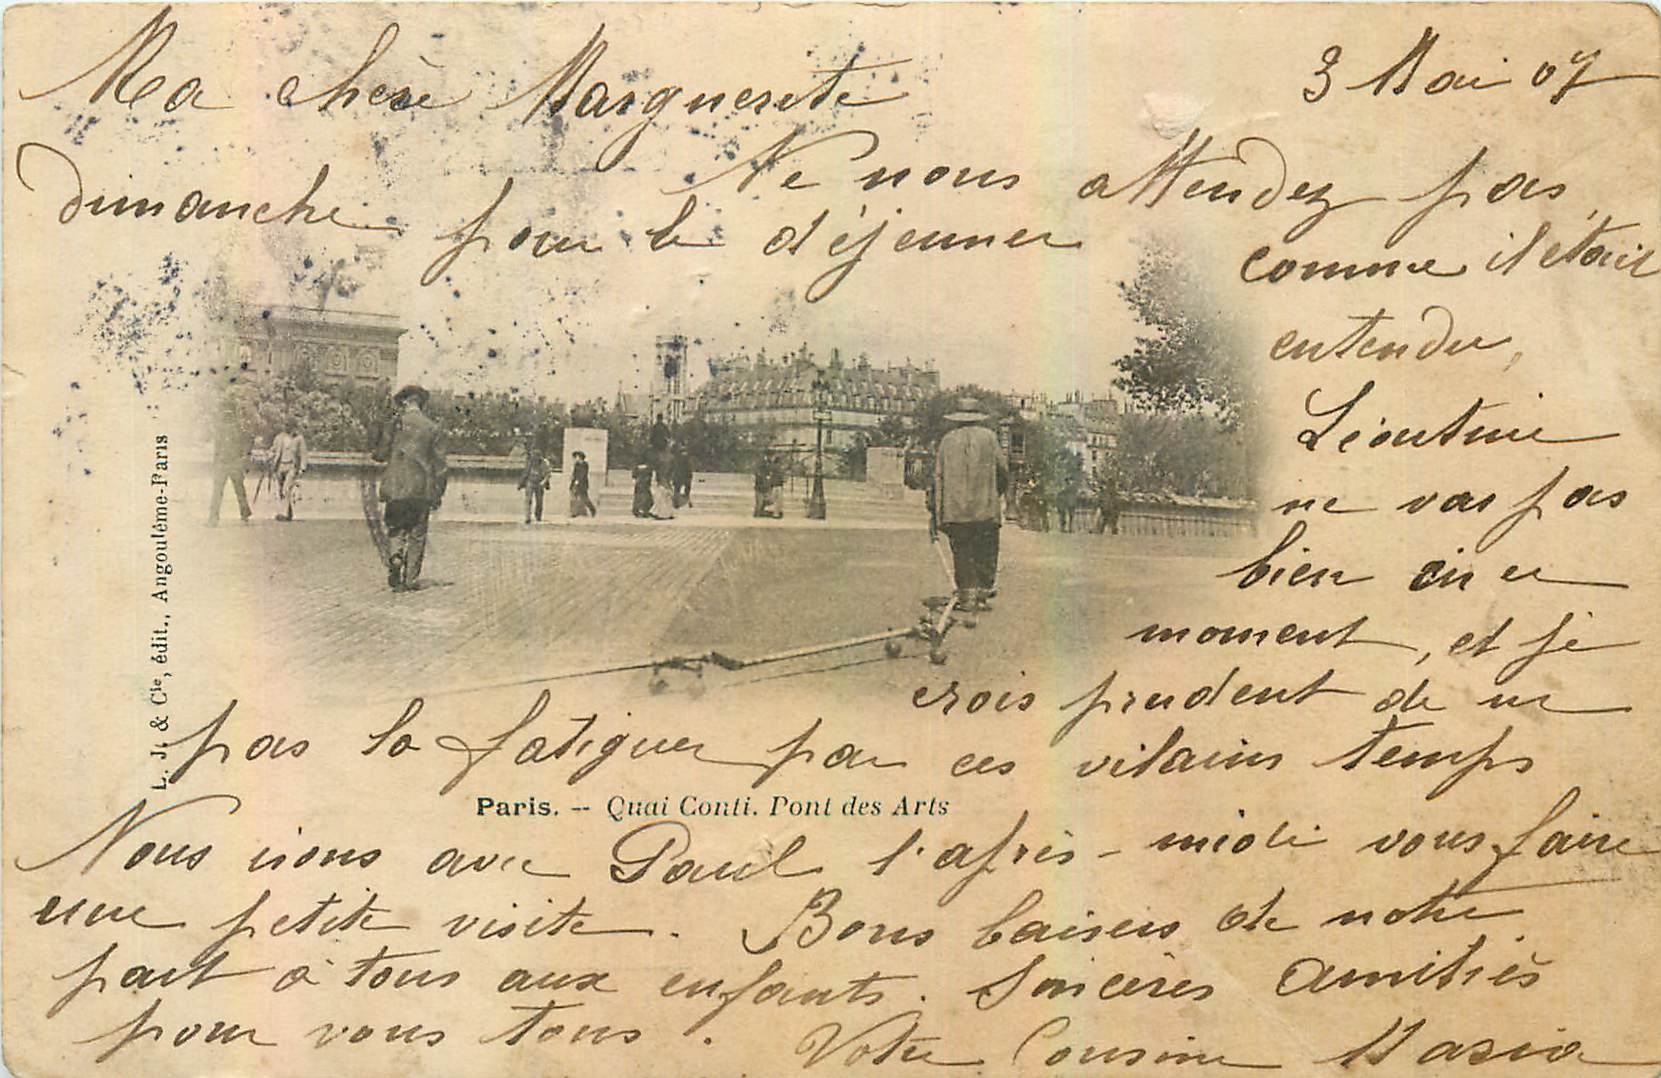 3 Mai 07
Ma chère Marguerite
Ne nous attendez pas
dimanche pour le déjeuner
comme il était
entendu,
Léontine
ne vas pas
bien en ce
moment, et je
crois prudent de ne
pas la fatiguer par ces vilains temps
Nous irons avec Paul l'après-midi vous faire
une petite visite. Bons baisers de notre
part à tous aux enfants. Sincères amitiés
pour vous tous. Votre Cousine Maria
Paris. -- Quai Conti. Pont des Arts
L. J. & Cie, édit., Angoulême-Paris